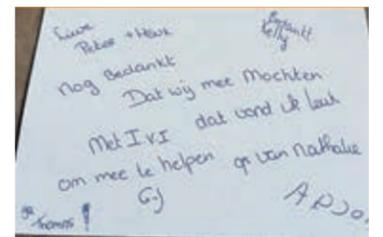 Lieve
Peter + Henk
Bedankt
Kelly
nog Bedankt
Dat wij mee Mochten
Met IVI dat vond ik leuk
om mee te helpen gr van Nathalie
GJ
ARJO.
gr
Thomas !